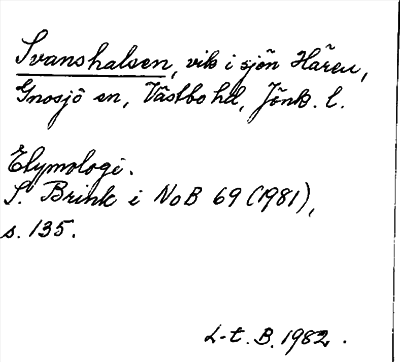 Svanshalsen, vik i sjön Hären,
Gnosjö sn, Västbo hd, Jönk. l.
Etymologi.
S. Brink i NoB 69 (1981),
s. 135.
L-t. B. 1982.